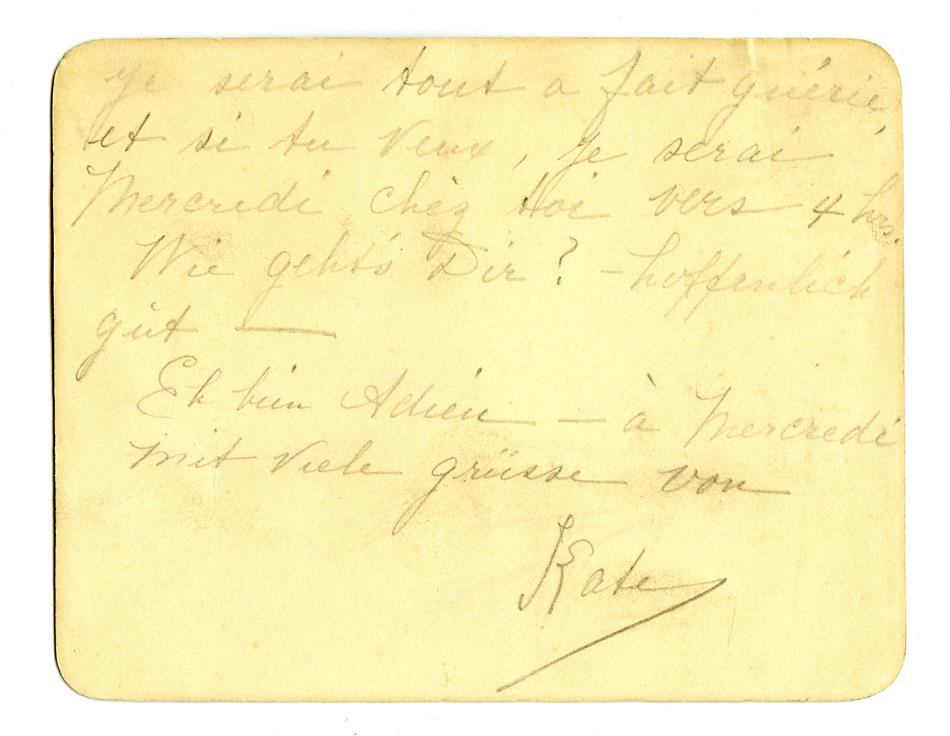 Je serai tout a fait guérie,
et si tu veux, je serai
Mercredi chèz toi vers 4 hrs.
Wie geht's Dir? - hoffenlich
gut —
Eh bien Adieu — à Mercredi
mit viele grüsse von
Kate